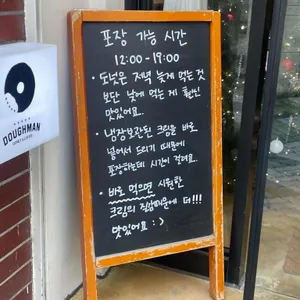 포장 가능 시간
12:00 - 19:00
· 도넛은 저녁 늦게 먹는 것
보단 낮에 먹는 게 훨씬
맛있어요..
· 냉장보관된 크림을 바로
넣어서 드리기 때문에
포장하는데 시간이 걸려요..
· 바로 먹으면 시원한
크림의 질감때문에 더!!!
맛있어요 : )
DOUGHMAN